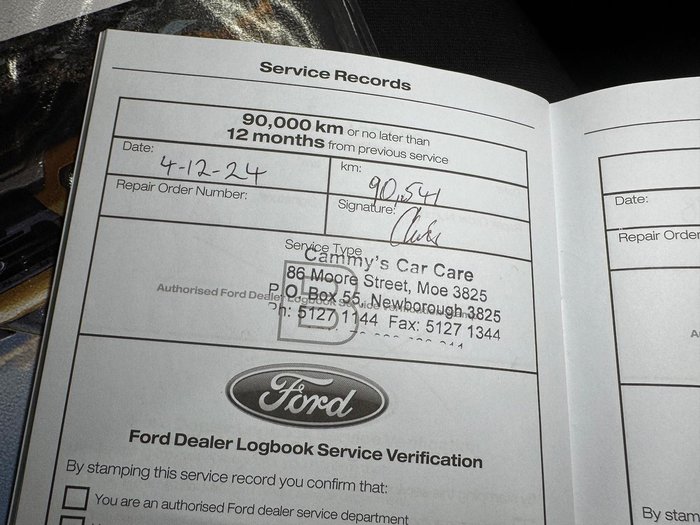 Service Records
90,000 km or no later than
12 months from previous service
Date:
4-12-24
km:
90,541
Repair Order Number:
Signature:
Service Type
B
Cammy's Car Care
86 Moore Street, Moe 3825
P.O. Box 55, Newborough 3825
Ph: 5127 1144 Fax: 5127 1344
Authorised Ford Dealer Logbook Service
Ford
Ford Dealer Logbook Service Verification
By stamping this service record you confirm that:
You are an authorised Ford dealer service department
Date:
Repair Order
By stam